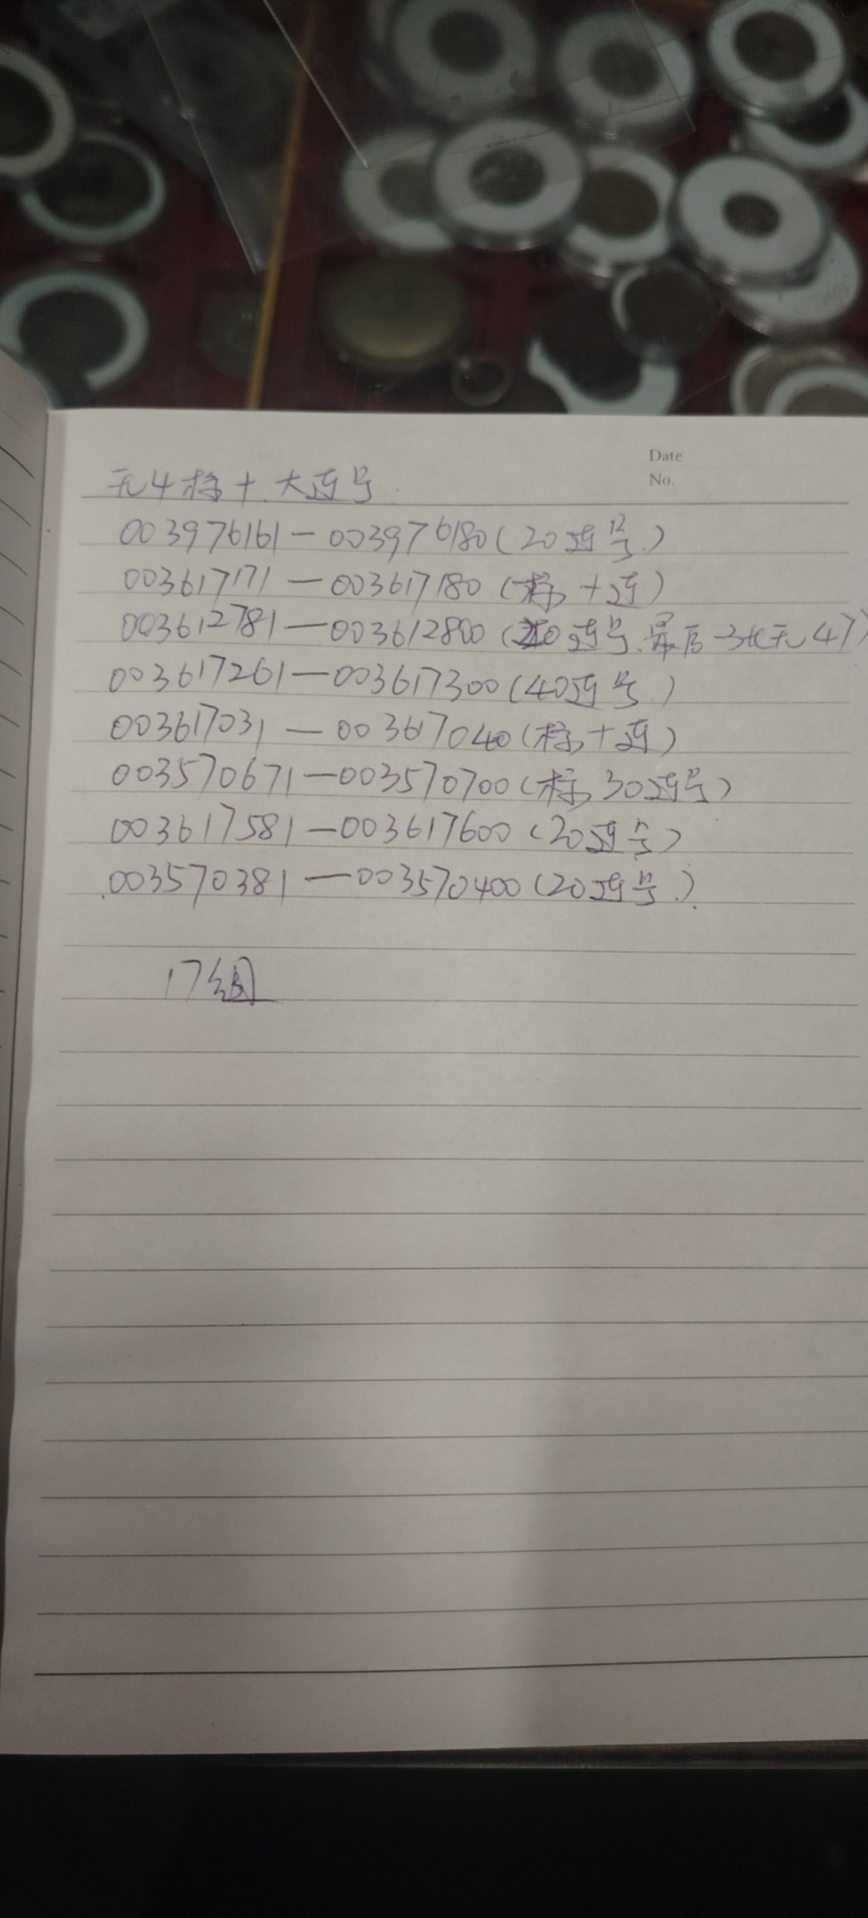 Date
No.
无4标十.大连号
003976161－003976180(20连号)
003617171－003617180(标十连)
003612781－003612800(20连号.最后3张无47)
003617261－003617300(40连号)
003617031－003617040(标十连)
003570671－003570700(标30连号)
003617581－003617600(20连号)
003570381－003570400(20连号)
17组